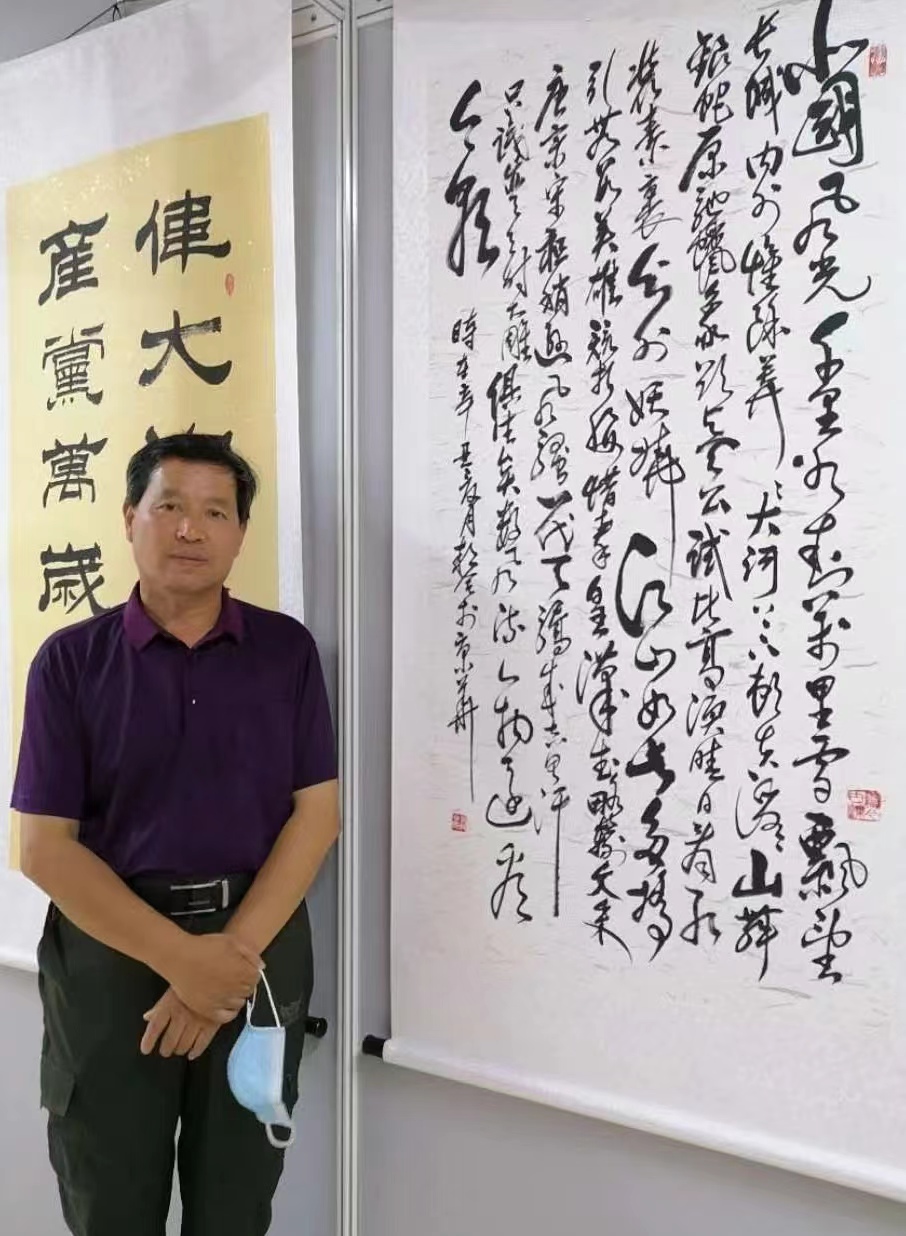 北國風光千里冰封萬里雪飄望
長城内外惟餘莽々大河上下頓失滔々山舞
銀蛇原馳蠟象欲與天公試比高須晴日看紅
裝素裹分外妖嬈江山如此多嬌
引無數英雄競折腰惜秦皇漢武略輸文采
唐宗宋祖稍遜風騷一代天驕成吉思汗
只識彎弓射大雕俱往矣數風流人物還看
今朝
時在辛丑月於京華
偉大
產黨萬歲